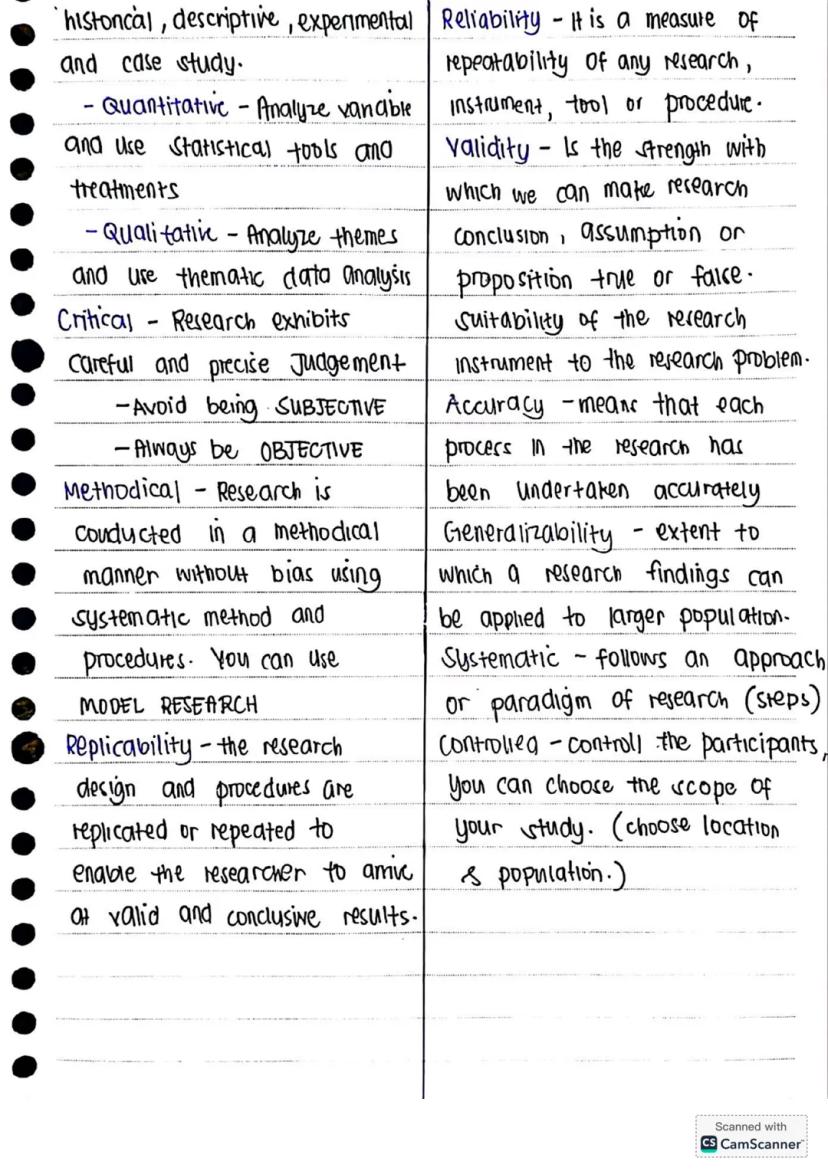 historical, descriptive, experimental
and case study.
- Quantitative - Analyze variable
and use statistical tools and
treatments
- Qualitative - Analyze themes
and use thematic data analysis
Critical - Research exhibits
careful and precise Judgement
- Avoid being SUBJECTIVE
- Always be OBJECTIVE
Methodical - Research is
conducted in a methodical
manner without bias using
systematic method and
procedures. You can use
MODEL RESEARCH
Replicability - the research
design and procedures are
replicated or repeated to
enable the researcher to arrive
at valid and conclusive results.
Reliability - It is a measure of
repeatability of any research,
instrument, tool or procedure.
Validity - Is the strength with
which we can make research
conclusion, assumption or
proposition true or false.
suitability of the research
instrument to the research problem.
Accuracy - means that each
process in the research has
been undertaken accurately
Generalizability - extent to
which a research findings can
be applied to larger population.
Systematic - follows an approach
or paradigm of research (steps)
Controlled - controll the participants,
you can choose the scope of
your study. (choose location
& population.)
Scanned with
CS CamScanner